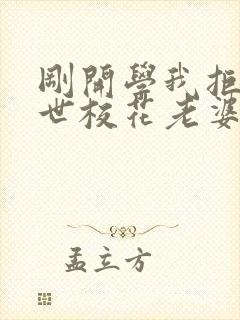 剛開學我拒
世校花老婆
孟立方